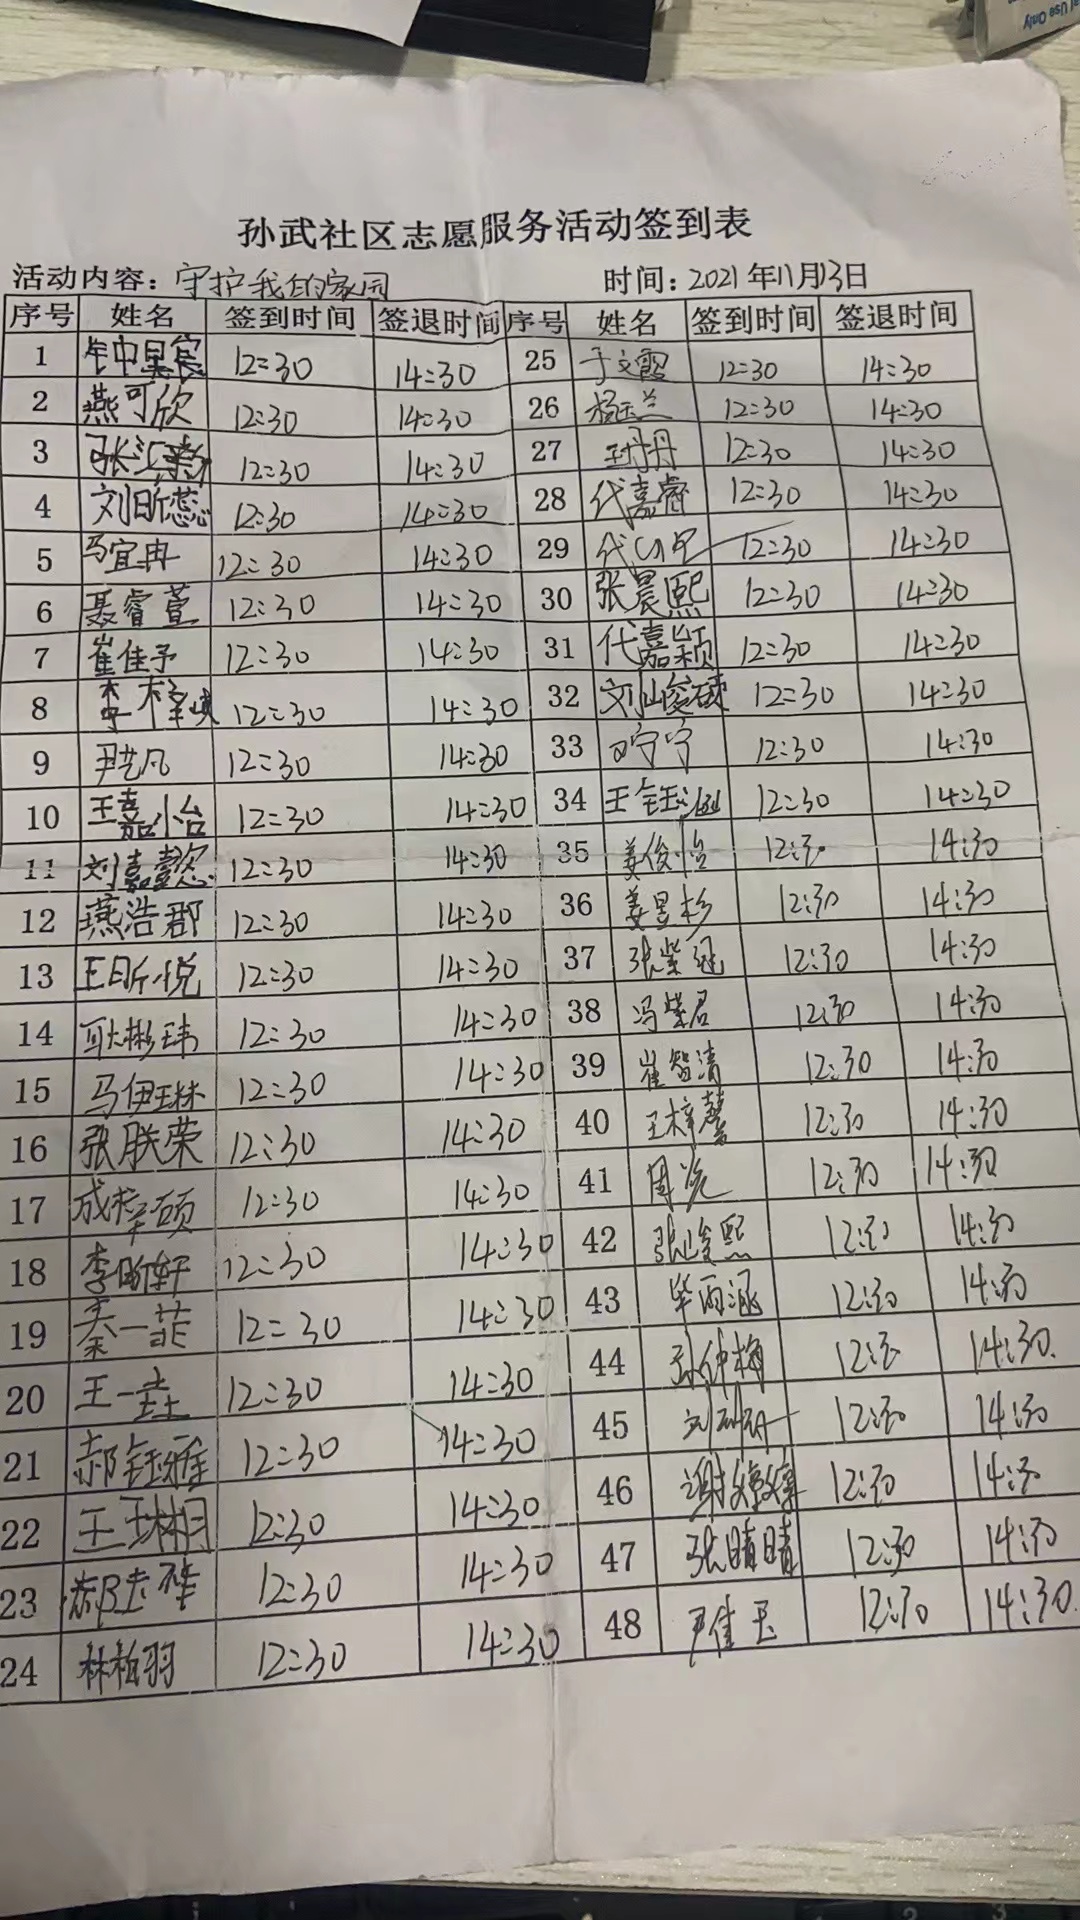 al Use Only
孙武社区志愿服务活动签到表
活动内容：守护我的家园 时间：2021年11月13日
序号 姓名 签到时间 签退时间 序号 姓名 签到时间 签退时间
1 12:30 14:30 25 于文霞 12:30 14:30
2 燕可欣 12:30 14:30 26 杨玉兰 12:30 14:30
3 12:30 14:30 27 王丹丹 12:30 14:30
4 刘昕蕊 12:30 14:30 28 代嘉睿 12:30 14:30
5 马宜冉 12:30 14:30 29 12:30 14:30
6 聂睿萱 12:30 14:30 30 张晨熙 12:30 14:30
7 崔佳予 12:30 14:30 31 代嘉颖 12:30 14:30
8 12:30 14:30 32 12:30 14:30
9 尹艺凡 12:30 14:30 33 宁宁 12:30 14:30
10 王嘉怡 12:30 14:30 34 王钰涵 12:30 14:30
11 刘嘉懿 12:30 14:30 35 姜俊怡 12:30 14:30
12 燕浩郡 12:30 14:30 36 姜昱杉 12:30 14:30
13 王昕悦 12:30 14:30 37 张紫冠 12:30 14:30
14 耿彬玮 12:30 14:30 38 冯紫君 12:30 14:30
15 马伊琳 12:30 14:30 39 崔智清 12:30 14:30
16 张朕荣 12:30 14:30 40 王梓馨 12:30 14:30
17 成梓硕 12:30 14:30 41 12:30 14:30
18 李昕轩 12:30 14:30 42 张峻熙 12:30 14:30
19 秦一菲 12:30 14:30 43 毕雨涵 12:30 14:30
20 王一 12:30 14:30 44 孙仲梅 12:30 14:30
21 郝钰雅 12:30 14:30 45 12:30 14:30
22 王 12:30 14:30 46 谢婷婷 12:30 14:30
23 12:30 14:30 47 张晴晴 12:30 14:30
24 林柏羽 12:30 14:30 48 尹佳玉 12:30 14:30